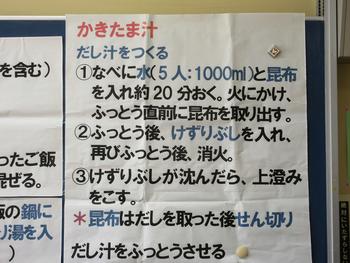 かきたま汁
だし汁をつくる
①なべに水(5人:1000ml)と昆布
を入れ約20分おく。火にかけ、
ふっとう直前に昆布を取り出す。
②ふっとう後、けずりぶしを入れ、
再びふっとう後、消火。
③けずりぶしが沈んだら、上澄み
をこす。
*昆布はだしを取った後せん切り
だし汁をふっとうさせる
を含む)
ったご飯
混ぜる。
飯の鍋に
り湯を入
絶対にいたずらしな